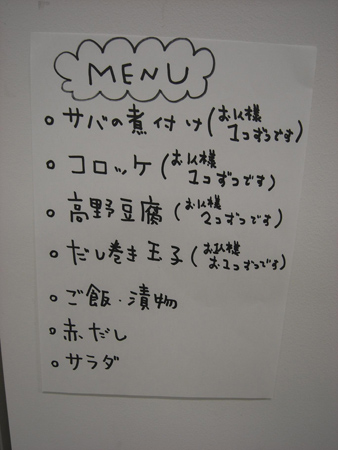 MENU
○ サバの煮付け(お1人様
1コずつです)
○ コロッケ(お1人様
1コずつです)
○ 高野豆腐(お1人様
2コずつです)
○ だし巻き玉子(お1人様
お1つずつです)
○ ご飯・漬物
○ 赤だし
○ サラダ